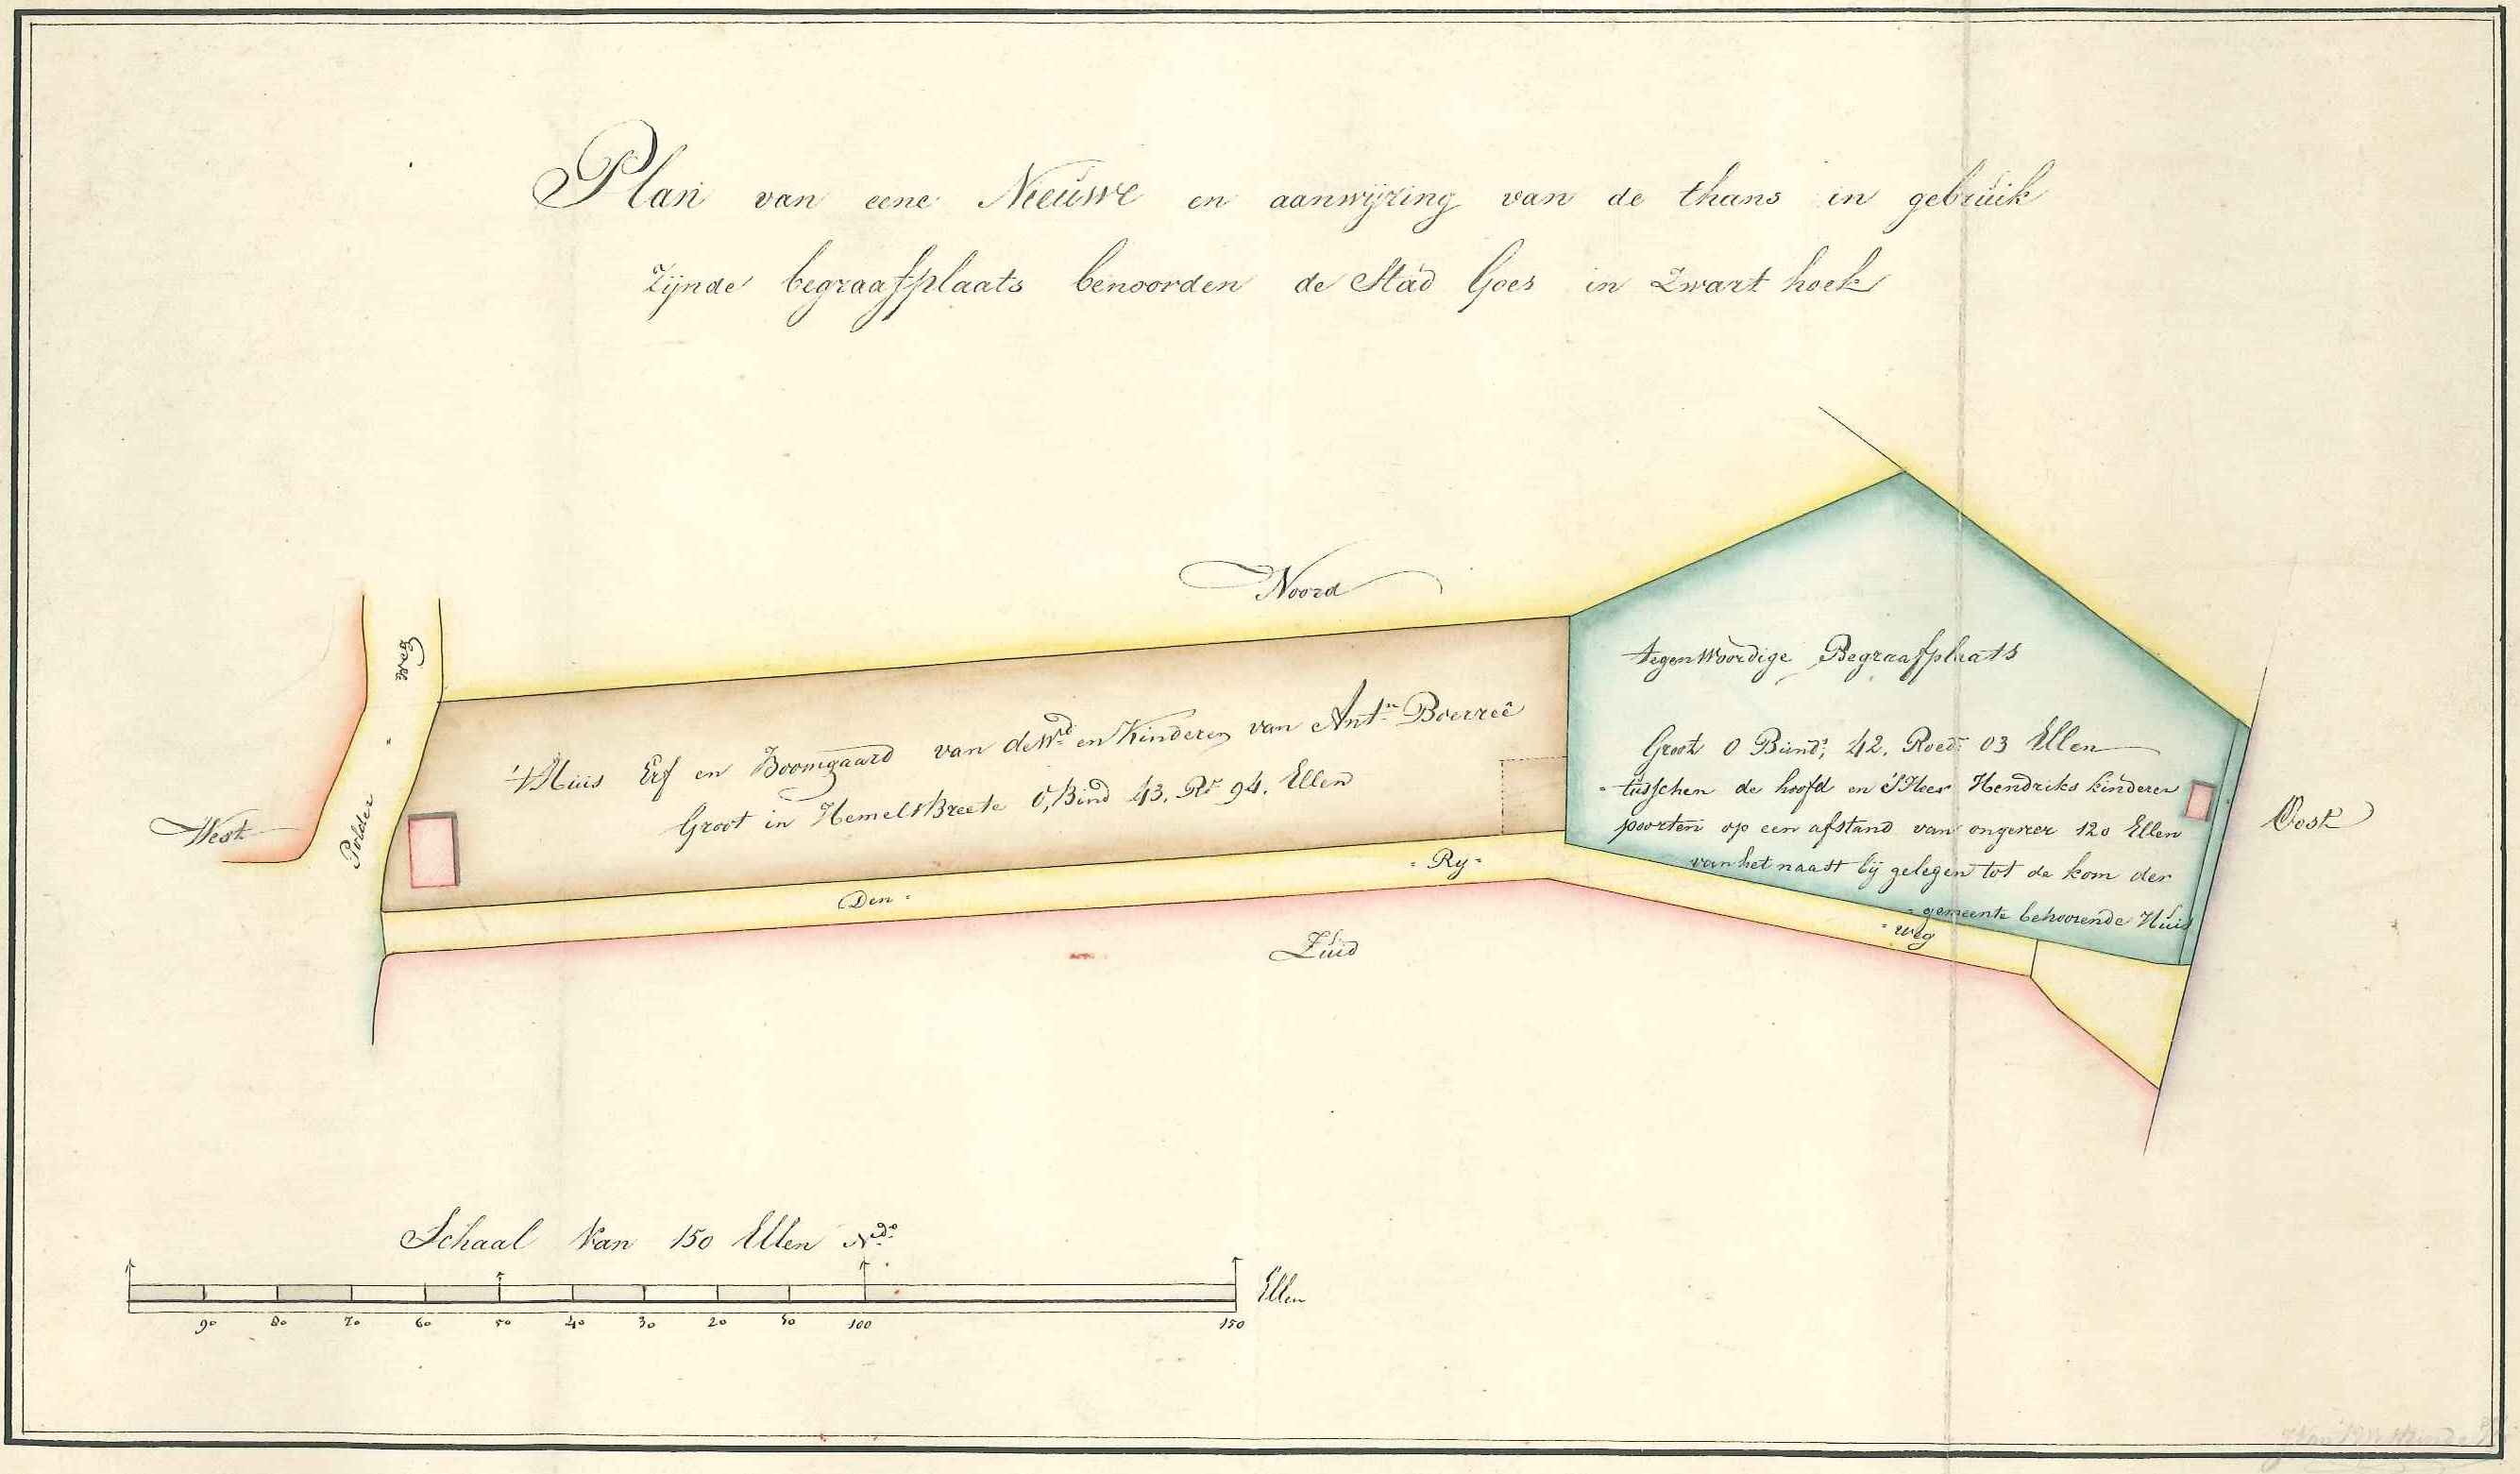 Plan van eene Nieuwe en aanwijzing van de thans in gebruik
zijnde begraafplaats benoorden de Stad Goes in Zwart hoek
Noord
tegenwoordige Begraafplaats
Groot 0 Bund.s 42. Roed. 03 Ellen
tusschen de hoofd en 'S Heer Hendriks kinderen
poorten op een afstand van ongeveer 120 Ellen
van het naast bij gelegen tot de kom der
gemeente behoorende Huis
'T Huis Erf en Boomgaard van de Wd en Kinderen van Antn Boerreê
Groot in Hemels Breete 0, Bind 43. Rs 94. Ellen
West
Polder
Oost
Den
Ry
weg
Zuid
Schaal Van 150 Ellen Nd
Ellen
90 80 70 60 50 40 30 20 10 100 150